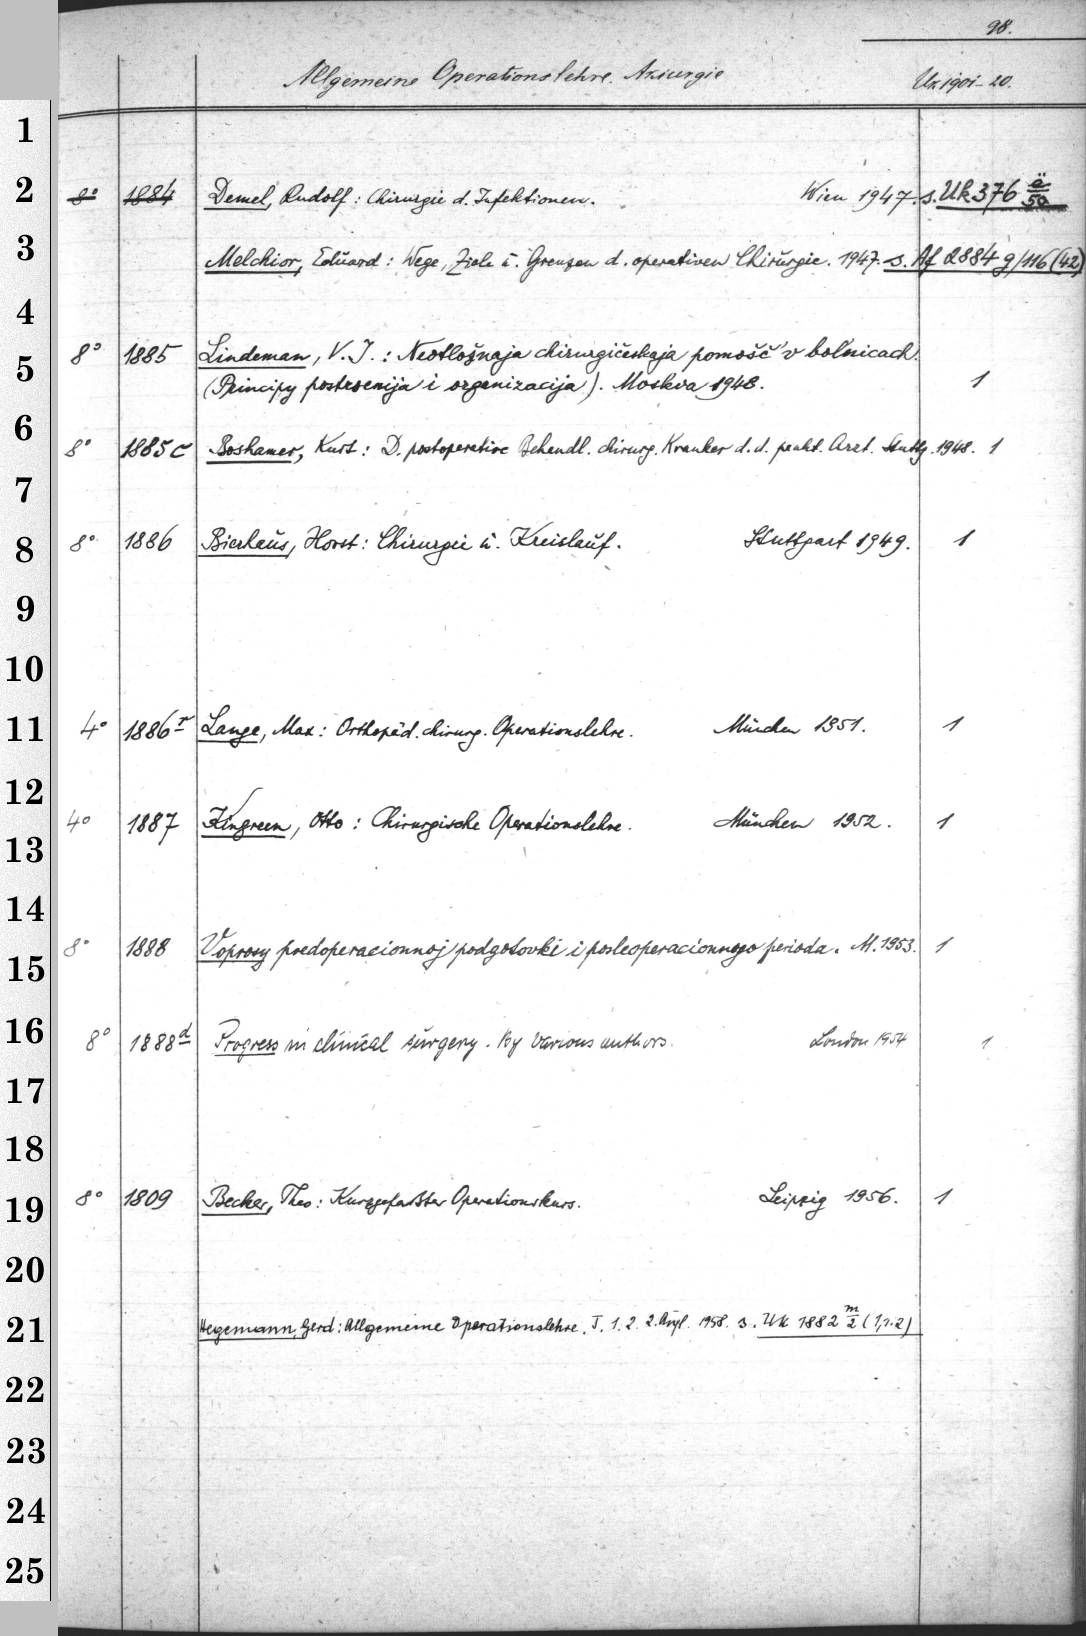 98.
Allgemeine Operationslehre. Akiurgie Uk 1901-20.
1
2 8° 1884 Demel, Rudolf: Chirurgie d. Infektionen. Wien 1947. s. Uk 376 ä/50
3 Melchior, Eduard: Wege, Ziele u. Grenzen d. operativen Chirurgie. 1947. s. Af 2884 g/116 (42)
4
5 8° 1885 Lindeman, V. I.: Neotložnaja chirurgičeskaja pomošč' v bol'nicach.
(Principy postroenija i organizacija). Moskva 1948. 1
6 8° 1885 c Boshamer, Kurt: D. postoperative Behandl. chirurg. Kranker d. d. prakt. Arzt. Stuttg. 1948. 1
7
8 8° 1886 Bierhaus, Horst: Chirurgie u. Kreislauf. Stuttgart 1949. 1
9
10
11 4° 1886 r Lange, Max: Orthopäd. chirurg. Operationslehre. München 1951. 1
12
4° 1887 Kingreen, Otto: Chirurgische Operationslehre. München 1952. 1
13
14
8° 1888 Voprosy predoperacionnoj podgotovki i posleoperacionnogo perioda. M. 1953. 1
15
16 8° 1888 d Progress in clinical surgery. By various authors. London 1954 1
17
18
19 8° 1809 Becker, Theo: Kurzgefaßter Operationskurs. Leipzig 1956. 1
20
21 Hegemann, Gerd: Allgemeine Operationslehre. I. 1. 2. 2. Aufl. 1958. s. Uk 1882 m/2 (1,1.2)
22
23
24
25